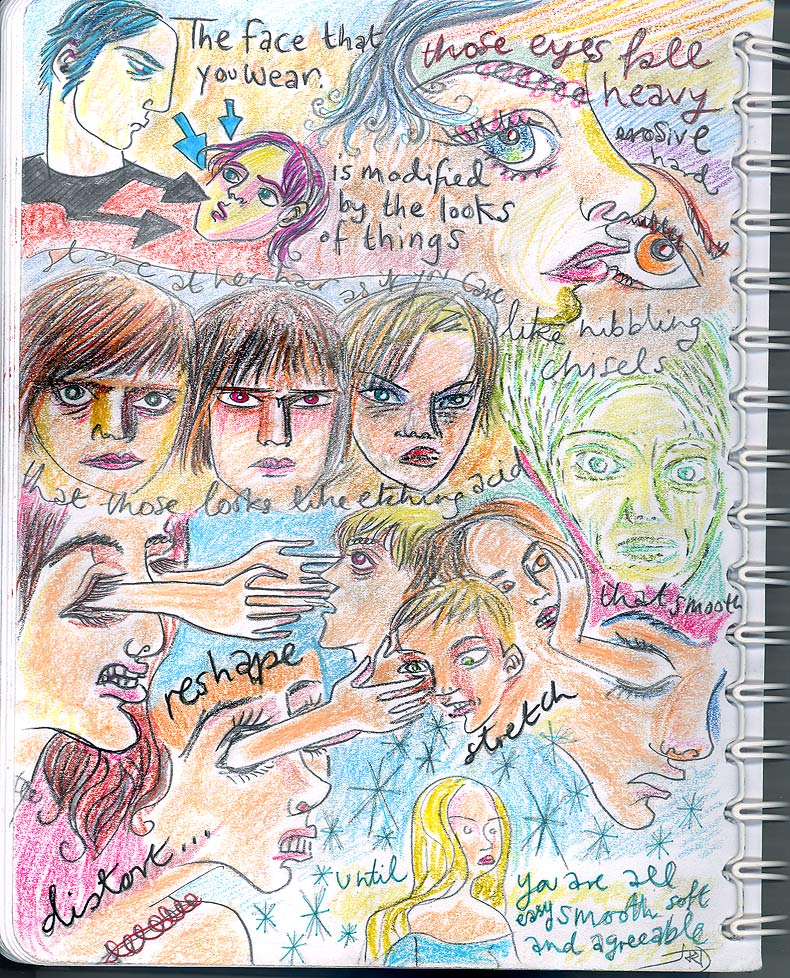 The face that
you wear.
is modified
by the looks
of things
those eyes fall
heavy
erosive
hard
stare at her hair as if you care
like nibbling
chisels
that those looks like etching acid
that smooth
reshape
stretch
distort...
until
you are all
easy smooth soft
and agreeable
JRD